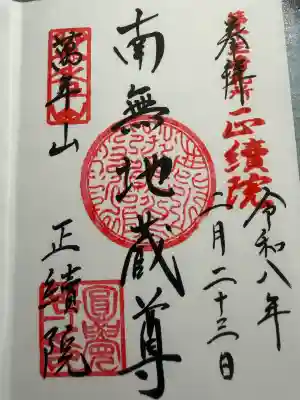 奉拝
正續院
令和八年
二月二十三日
南無地蔵尊
萬年山
正續院